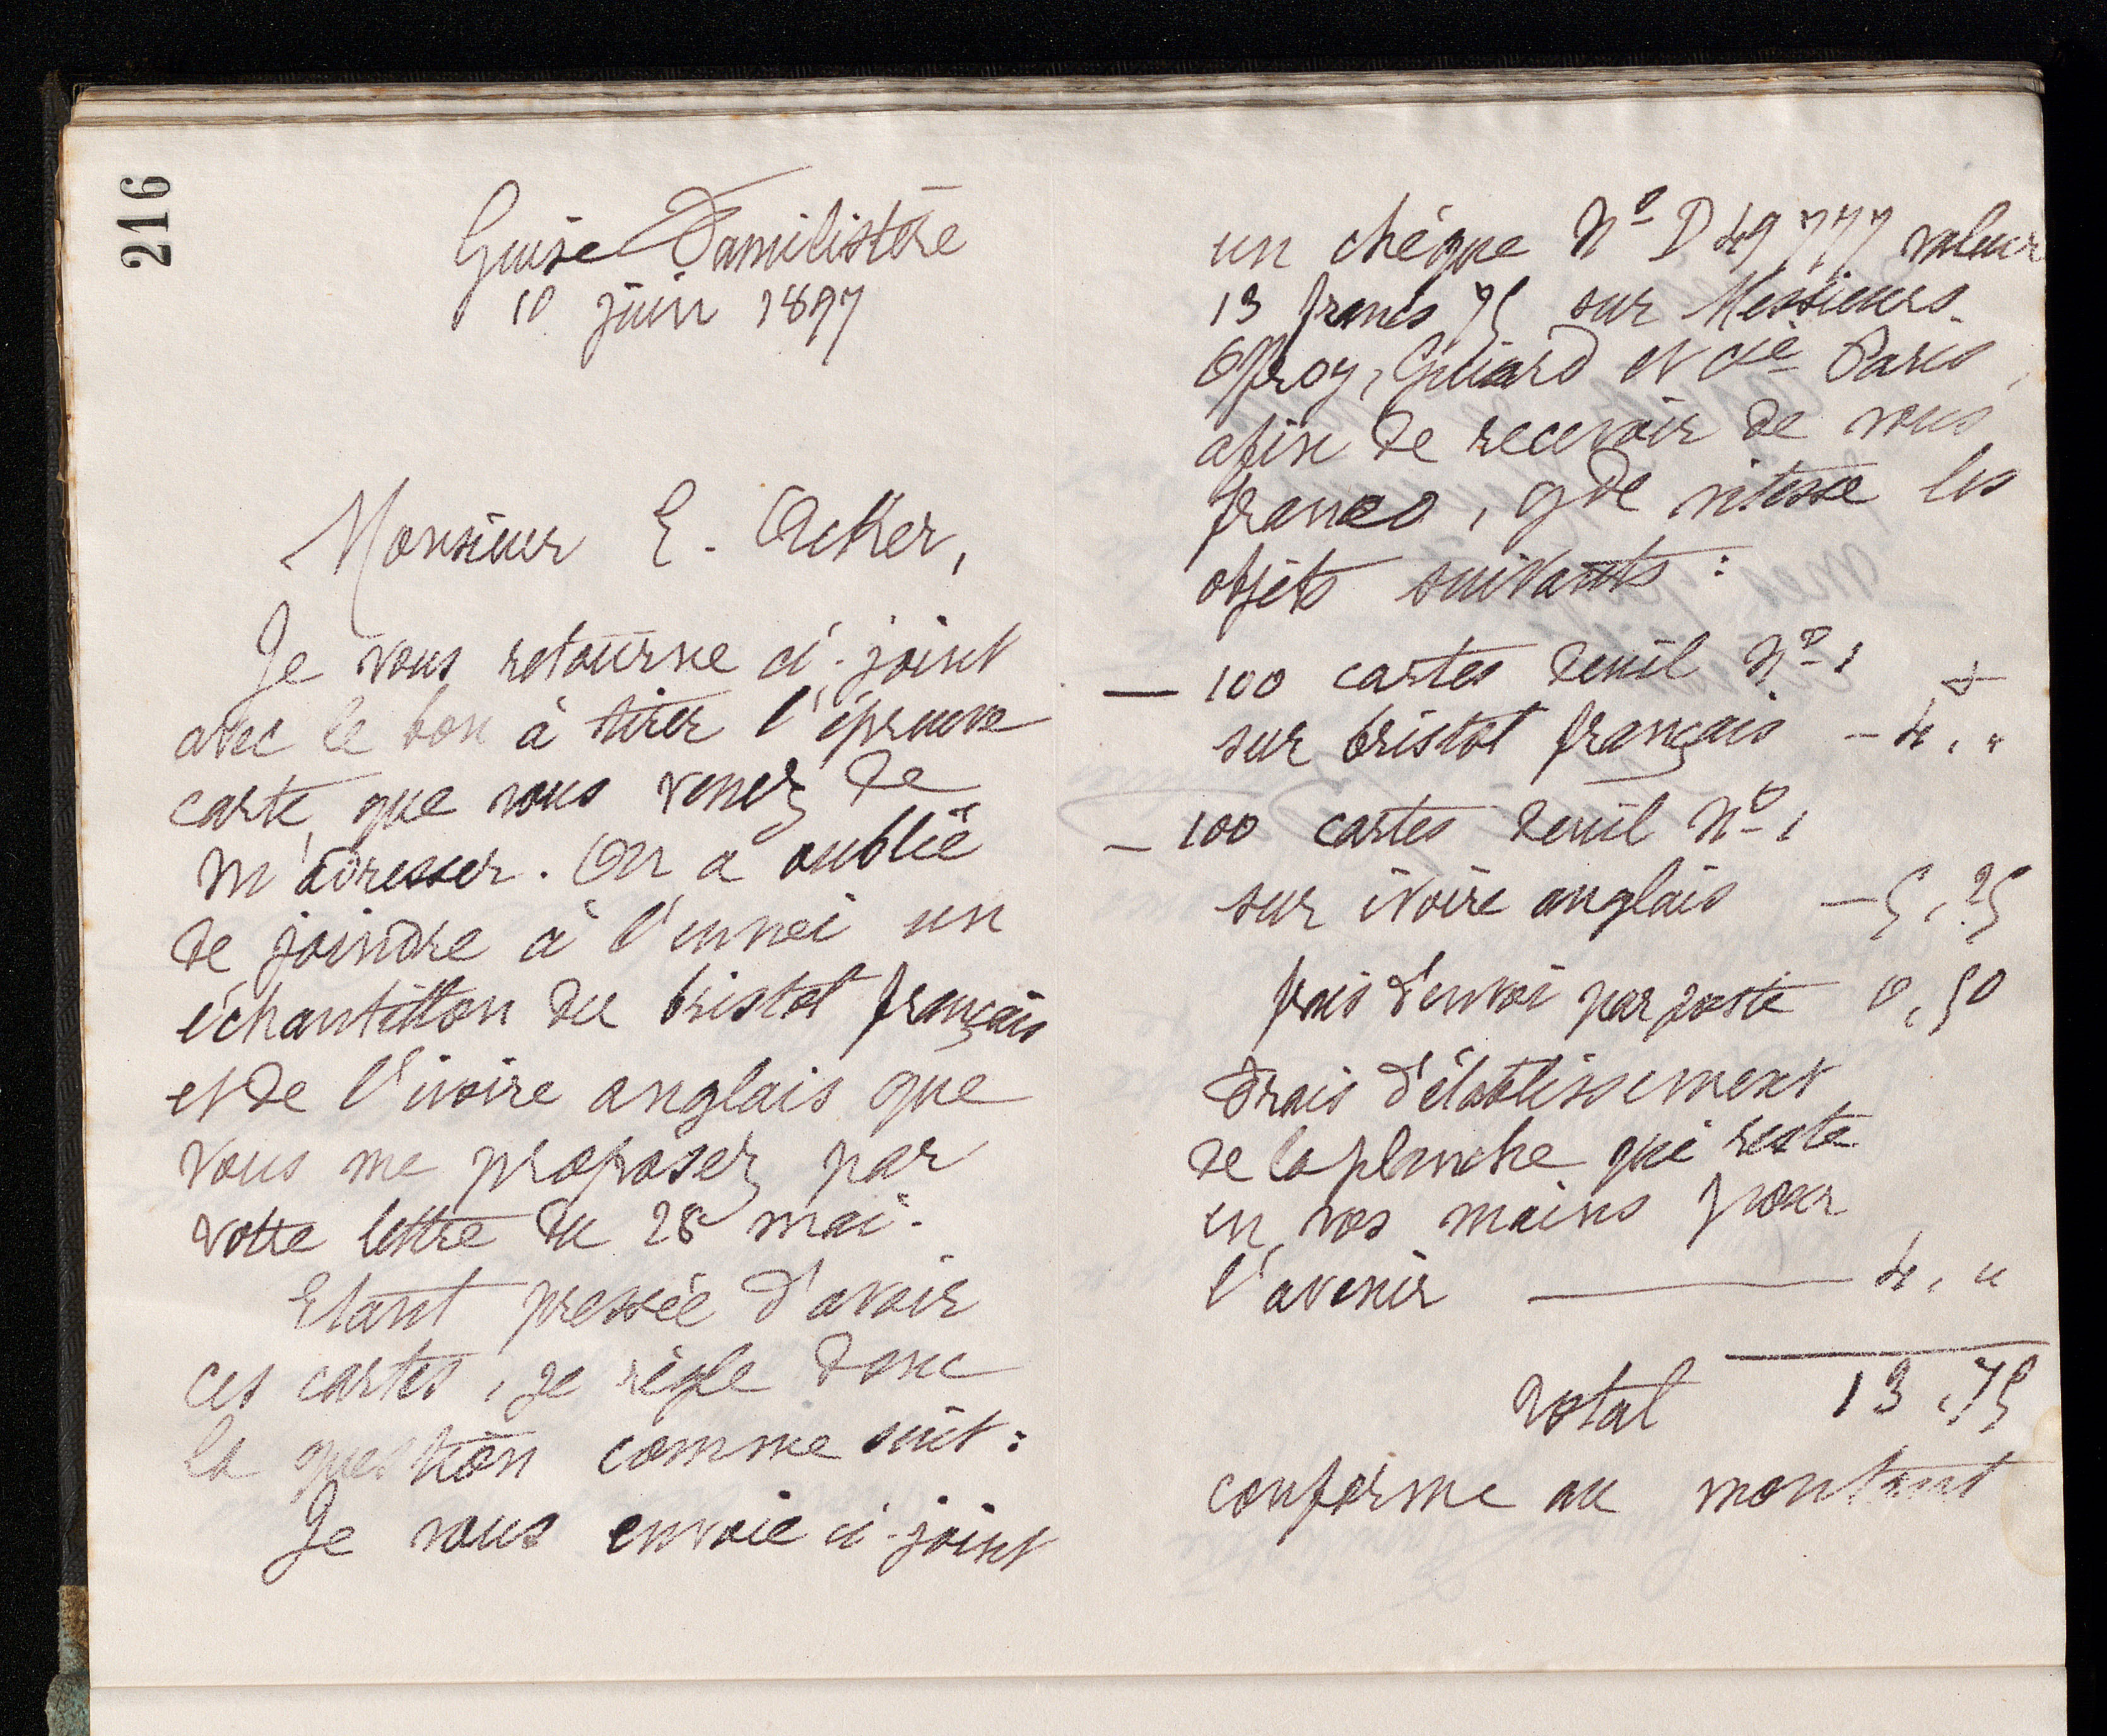 216
Guise Familistère
10 juin 1897
Monsieur E. Acker,
Je vous retourne ci-joint
avec le bon à tirer l'épreuve
carte que vous venez de
m'adresser. On a oublié
de joindre à l'envoi un
échantillon du bristol français
et de l'ivoire anglais que
vous me proposez par
votre lettre du 28 mai.
Etant pressée d'avoir
ces cartes, je règle donc
la question comme suit :
Je vous envoie ci-joint
un chèque No D 49777 valeur
13 francs 75 sur Messieurs
Offroy, Guiard et Cie Paris,
afin de recevoir de vous
franco, gde vitesse les
objets suivants :
— 100 cartes deuil No 1
sur bristol français — 4, "
— 100 cartes deuil No 1
sur ivoire anglais — 5,25
frais d'envoi par poste 0,50
Frais d'établissement
de la planche qui reste
en vos mains pour
l'avenir — 4, "
Total 13,75
conforme au montant